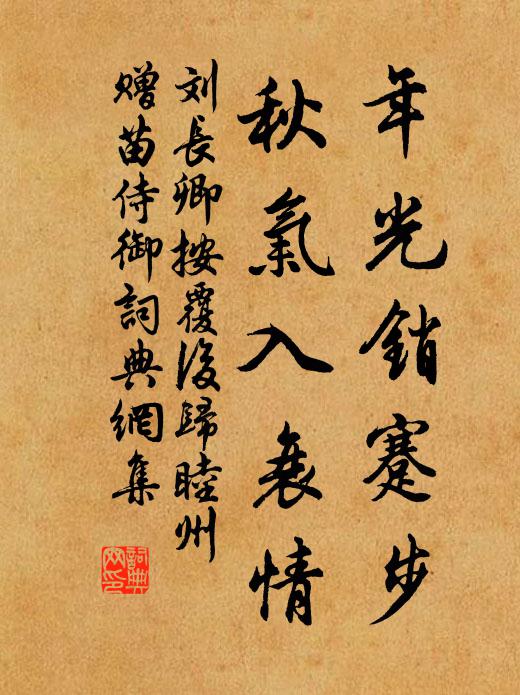 年光銷蹇步
秋氣入衰情
刘長卿按覆後歸睦州
贈苗侍御詞典網集
詞典网印